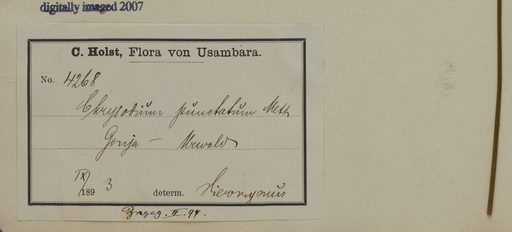 digitally imaged 2007
C. Holst, Flora von Usambara.
No. 4268
Chrysodium punctatum Mett
Gonja – Urwald
IX/1893 determ. Hieronymus
II. 94.